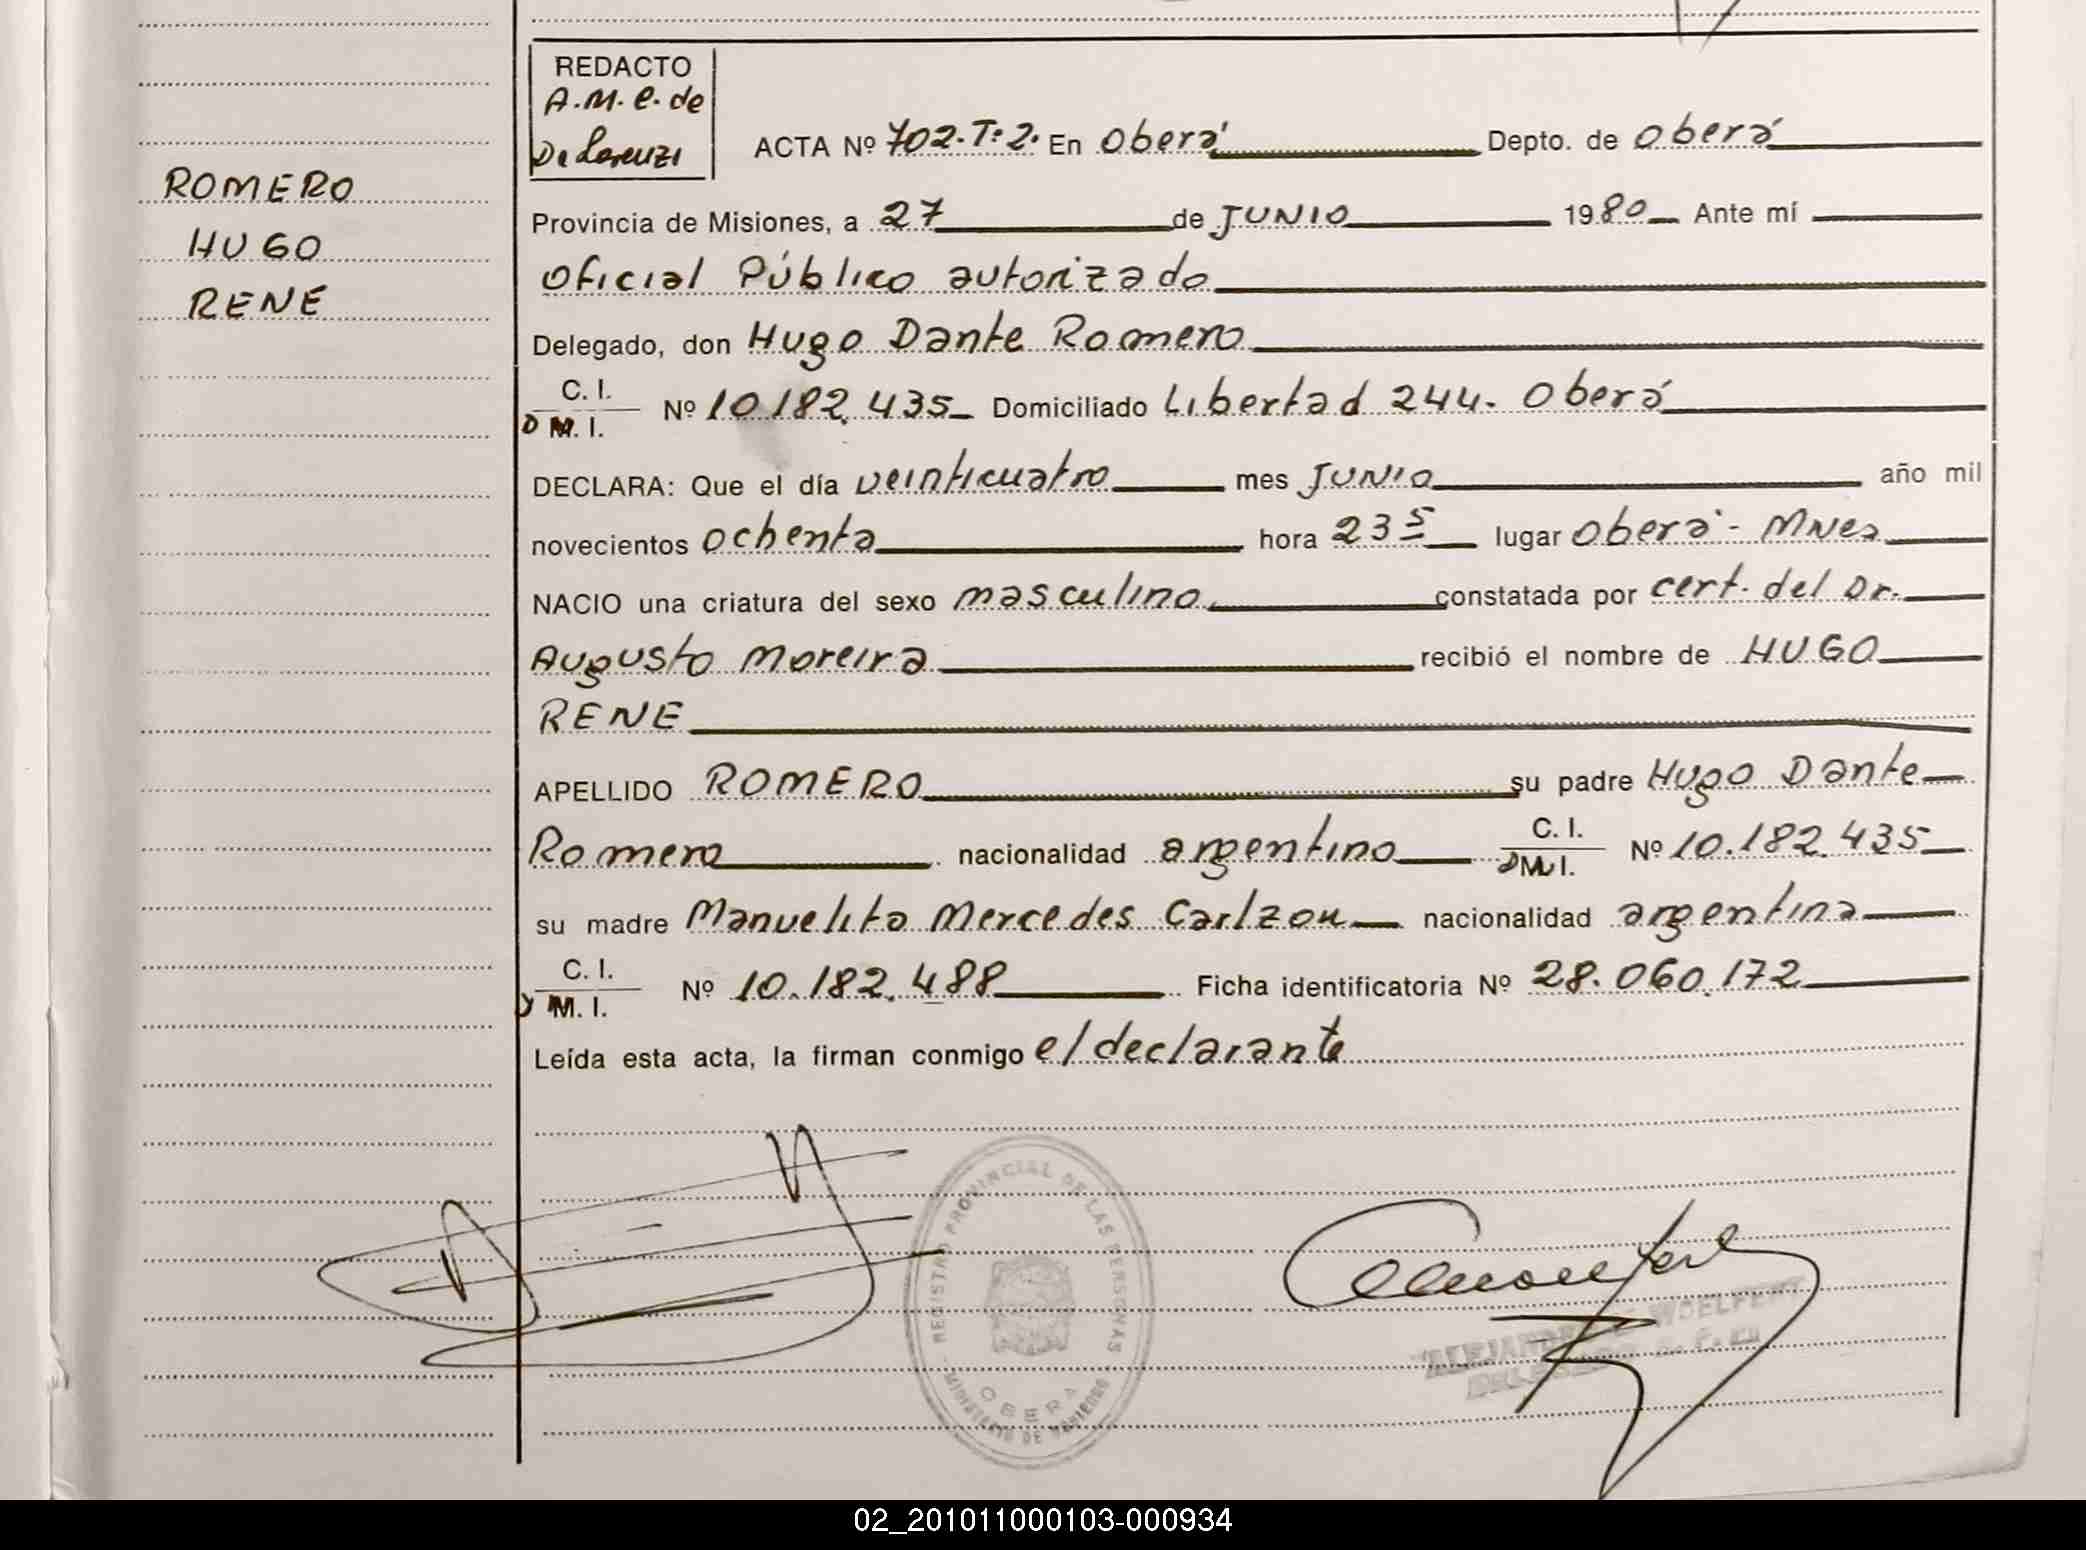 REDACTO
A.M.C. de
De Lorenzi
ROMERO
HUGO
RENE
ACTA Nº 702.T:2. En Oberá Depto. de Oberá
Provincia de Misiones, a 27 de JUNIO 1980 Ante mí
Oficial Público autorizado
Delegado, don Hugo Dante Romero
C. I.
D M. I. Nº 10.182.435 Domiciliado Libertad 244. Oberá
DECLARA: Que el día veinticuatro mes JUNIO año mil
novecientos ochenta hora 23 5 lugar Oberá - Mnes
NACIO una criatura del sexo masculino constatada por cert. del Dr.
Augusto Moreira recibió el nombre de HUGO
RENE
APELLIDO ROMERO su padre Hugo Dante
Romero nacionalidad argentino C. I. D M. I. Nº 10.182.435
su madre Manuelita Mercedes Carlzon nacionalidad argentina
C. I.
D M. I. Nº 10.182.488 Ficha identificatoria Nº 28.060.172
Leída esta acta, la firman conmigo el declarante
REGISTRO PROVINCIAL DE LAS PERSONAS
OBERA
MINISTERIO DE GOBIERNO
WOELFERT
DELEGADO
02_201011000103-000934